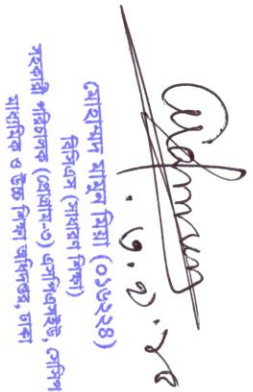 ৩.২.২০
মোহাম্মদ মামুন মিয়া (০১৬২২৪)
বিসিএস (সাধারণ শিক্ষা)
সহকারী পরিচালক (গ্রেড-৩) এসপিএসইউ, সেসিপ
মাধ্যমিক ও উচ্চ শিক্ষা অধিদপ্তর, ঢাকা